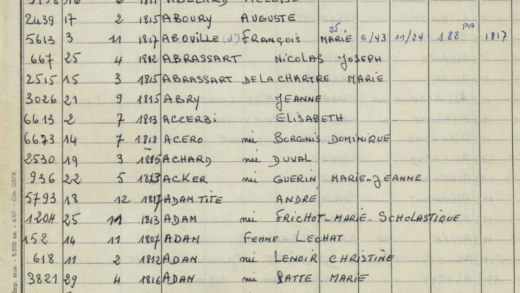 2439 17 2 1815 ABOURY AUGUSTE
5613 3 11 1817 ABOVILLE (d') FRANÇOIS MARIE 25 6/43 11/24 1.82 PA 1817
667 25 4 1812 ABRASSART NICOLAS JOSEPH
2515 15 3 1815 ABRASSART DE LA CHARTRE MARIE
3026 21 9 1815 ABRY JEANNE
6613 2 7 1813 ACCERBI ELISABETH
6673 14 7 1818 ACERO née BORGNIS DOMINIQUE
2530 19 3 1815 ACHARD née DUVAL
936 22 5 1813 ACKER née GUERIN MARIE-JEANNE
5793 18 12 1817 ADAM TITE ANDRÉ
1204 25 11 1813 ADAM née FRICHOT-MARIE-SCHOLASTIQUE
152 14 11 1807 ADAM FEMME LECHAT
618 11 2 1812 ADAN née LENOIR CHRISTINE
3821 29 4 1816 ADAN née PATTE MARIE